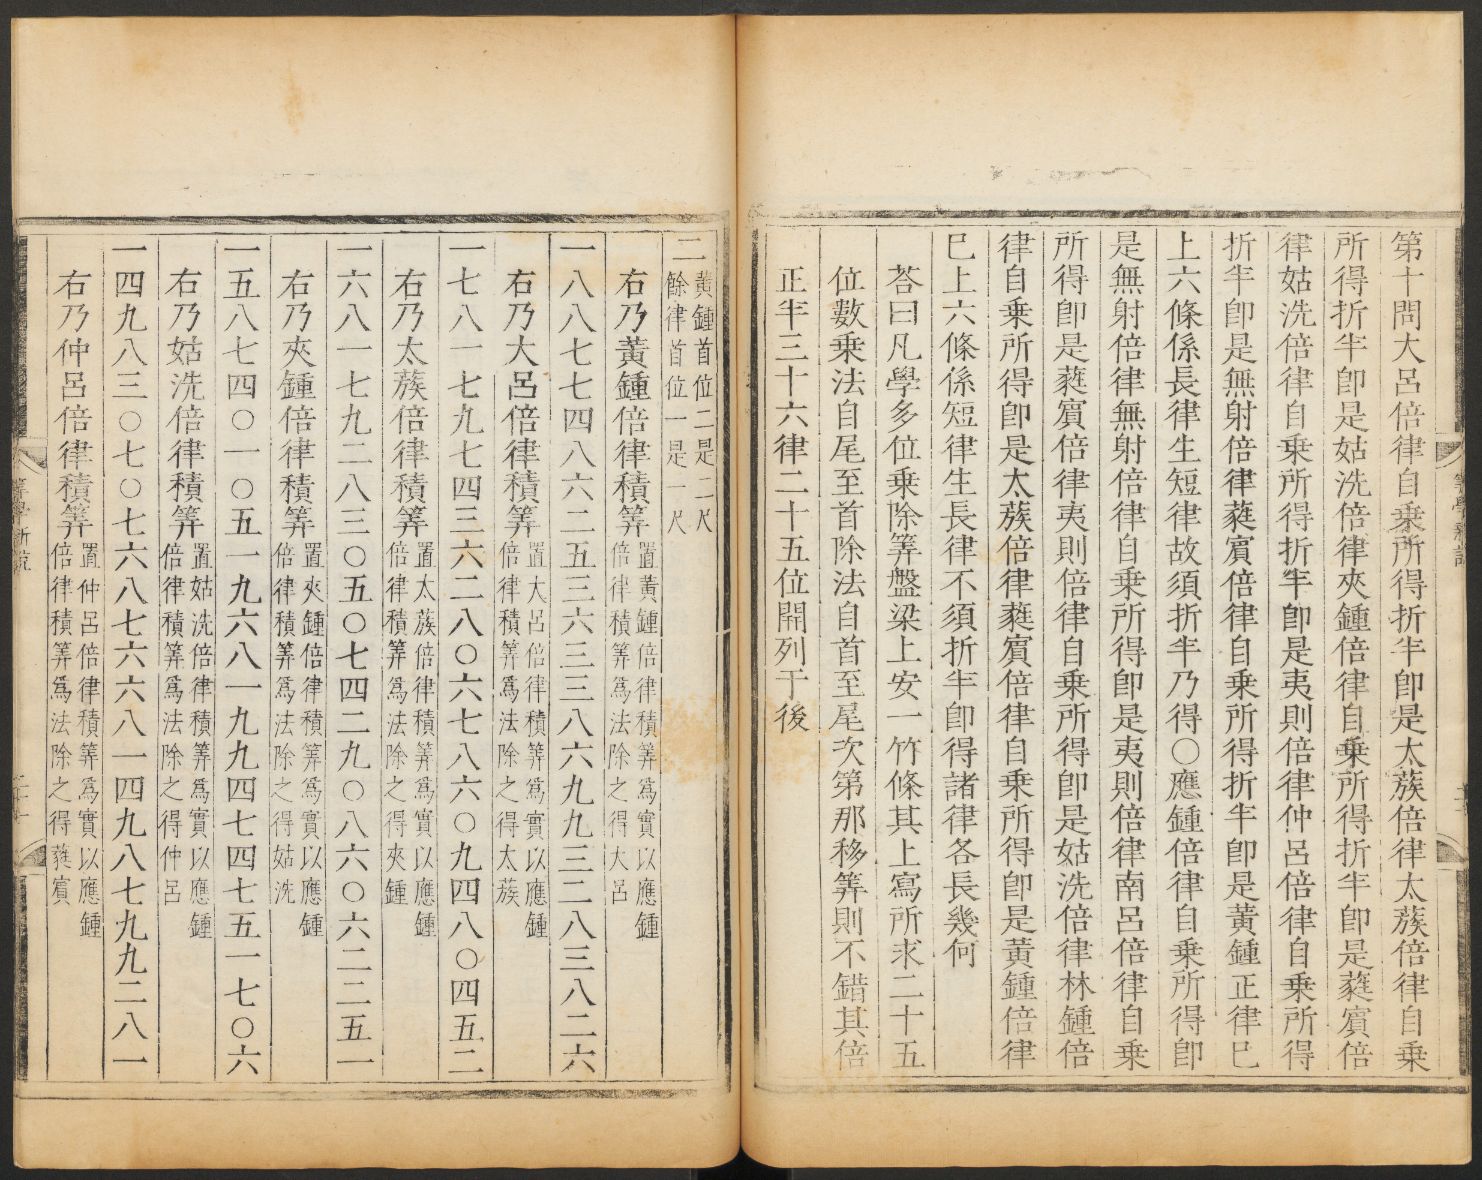 第十問大呂倍律自乗所得折半卽是太蔟倍律太蔟倍律自乗
所得折半卽是姑洗倍律夾鍾倍律自乗所得折半卽是蕤賓倍
律姑洗倍律自乗所得折半卽是夷則倍律仲呂倍律自乗所得
折半卽是無射倍律蕤賓倍律自乗所得折半卽是黃鍾正律已
上六條係長律生短律故須折半乃得○應鍾倍律自乗所得卽
是無射倍律無射倍律自乗所得卽是夷則倍律南呂倍律自乗
所得卽是蕤賓倍律夷則倍律自乗所得卽是姑洗倍律林鍾倍
律自乗所得卽是太蔟倍律蕤賓倍律自乗所得卽是黃鍾倍律
已上六條係短律生長律不須折半卽得諸律各長幾何
荅曰凡學多位乗除筭盤梁上安一竹條其上寫所求二十五
位數乗法自尾至首除法自首至尾次第那移筭則不錯其倍
正半三十六律二十五位開列于後
二
黃鍾首位二是二尺
餘律首位一是一尺
右乃黃鍾倍律積筭
置黃鍾倍律積筭爲實以應鍾
倍律積筭爲法除之得大呂
一八八七七四八六二五三六三三八六九九三二八三八二六
右乃大呂倍律積筭
置大呂倍律積筭爲實以應鍾
倍律積筭爲法除之得太蔟
一七八一七九七四三六二八〇六七八六〇九四八〇四五二
右乃太蔟倍律積筭
置太蔟倍律積筭爲實以應鍾
倍律積筭爲法除之得夾鍾
一六八一七九二八三〇五〇七四二九〇八六〇六二二五一
右乃夾鍾倍律積筭
置夾鍾倍律積筭爲實以應鍾
倍律積筭爲法除之得姑洗
一五八七四〇一〇五一九六八一九九四七四七五一七〇六
右乃姑洗倍律積筭
置姑洗倍律積筭爲實以應鍾
倍律積筭爲法除之得仲呂
一四九八三〇七〇七六八七六六八一四九八七九九二八一
右乃仲呂倍律積筭
置仲呂倍律積筭爲實以應鍾
倍律積筭爲法除之得蕤賓